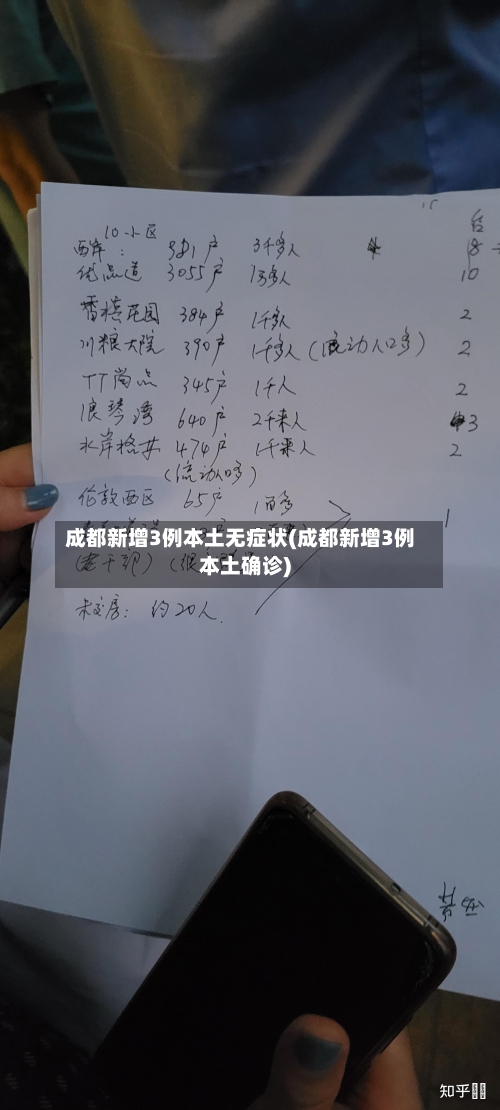 15
10小区 台
西岸: 981户 3千多人 18
优品道 3055户 1万多人 10
香榛花园 384户 1千多人 2
川粮大院 390户 1千多人(流动人口多) 2
TT尚品 345户 1千人 2
浪琴湾 640户 2千来人 3
水岸格 474户 1千来人 2
(流动人口多)
伦敦西区 65户 1百多
1
成都新增3例本土无症状(成都新增3例
本土确诊)
未交房: 约20人.
知乎